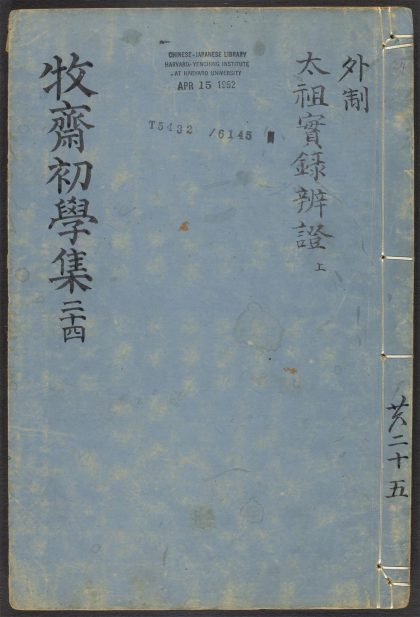 外制
太祖實録辨證上
牧齋初學集二十四
CHINESE-JAPANESE LIBRARY
HARVARD-YENCHING INSTITUTE
AT HARVARD UNIVERSITY
APR 15 1952
T5432 /6145
共二十五
24